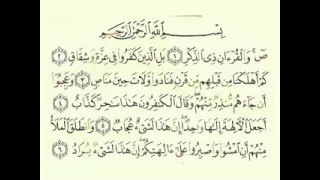 بِسْمِ ٱللَّهِ ٱلرَّحْمَٰنِ ٱلرَّحِيمِ
صٓ وَٱلْقُرْءَانِ ذِى ٱلذِّكْرِ ١ بَلِ ٱلَّذِينَ كَفَرُوا۟ فِى عِزَّةٍ وَشِقَاقٍ ٢
كَمْ أَهْلَكْنَا مِن قَبْلِهِم مِّن قَرْنٍ فَنَادَوا۟ وَّلَاتَ حِينَ مَنَاصٍ ٣ وَعَجِبُوٓا۟
أَن جَآءَهُم مُّنذِرٌ مِّنْهُمْ وَقَالَ ٱلْكَٰفِرُونَ هَٰذَا سَٰحِرٌ كَذَّابٌ ٤
أَجَعَلَ ٱلْءَالِهَةَ إِلَٰهًا وَٰحِدًا إِنَّ هَٰذَا لَشَىْءٌ عُجَابٌ ٥ وَٱنطَلَقَ ٱلْمَلَأُ
مِنْهُمْ أَنِ ٱمْشُوا۟ وَٱصْبِرُوا۟ عَلَىٰٓ ءَالِهَتِكُمْ إِنَّ هَٰذَا لَشَىْءٌ يُرَادُ ٦